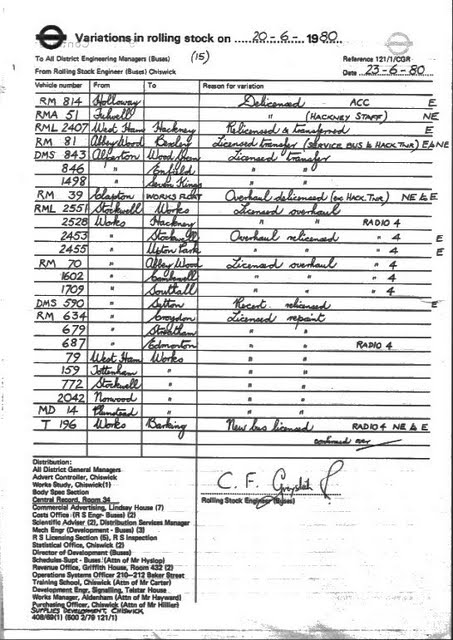 Variations in rolling stock on 20-6-1980
To All District Engineering Managers (Buses) (15) Reference 121/1/CGR
From Rolling Stock Engineer (Buses) Chiswick Date 23-6-80
Vehicle number From To Reason for variation
RM 814 Holloway Delicensed ACC E
RMA 51 Fulwell " (HACKNEY STAFF) NE
RML 2407 West Ham Hackney Relicensed & transferred E
RM 81 Abbey Wood Bexley Licensed transfer (SERVICE BUS to HACK TNR) E & NE
DMS 843 Alperton Wood Green Licensed transfer
846 " Enfield " "
1498 " Seven Kings " "
RM 39 Clapton WORKS FLOAT Overhaul delicensed (ex HACK TNR) NE & E
RML 2551 Stockwell Works Licensed overhaul
2528 Works Hackney " " RADIO 4
2453 " Stockwell Overhaul relicensed " 4 E
2455 " Upton Park " " " 4 E
RM 70 " Abbey Wood Licensed overhaul " 4
1602 " Camberwell " " " 4
1709 " Southall " " " 4
DMS 590 " Sutton Recert. relicensed E
RM 634 " Croydon Licensed repaint
679 " Streatham " "
687 " Edmonton " " RADIO 4
79 West Ham Works " "
159 Tottenham " " "
772 Stockwell " " "
2042 Norwood " " "
MD 14 Plumstead " " "
T 196 Works Barking New bus licensed RADIO 4 NE & E
Distribution:
All District General Managers
Advert Controller, Chiswick
Works Study, Chiswick(1)
Body Spec Section
Central Record, Room 34
Commercial Advertising, Lindsay House (7)
Costs Office (R S Engr- Buses) (2)
Scientific Adviser (2), Distribution Services Manager
Mech Engr (Development - Buses) (3)
R S Licensing Section (5), R S Inspection
Statistical Office, Chiswick (2)
Director of Development (Buses)
Schedules Supt - Buses (Attn of Mr Hyslop)
Revenue Office, Griffith House, Room 432 (2)
Operations Systems Officer 210-212 Baker Street
Training School, Chiswick (Attn of Mr Carter)
Development Engr, Signalling, Telstar House
Works Manager, Aldenham (Attn of Mr Hayward)
Purchasing Officer, Chiswick (Attn of Mr Hillier)
SUPPLIES DEVELOPMENT, CHISWICK
408/69(1) (600 2/79 121/1)
C. F.
Rolling Stock Engineer (Buses)